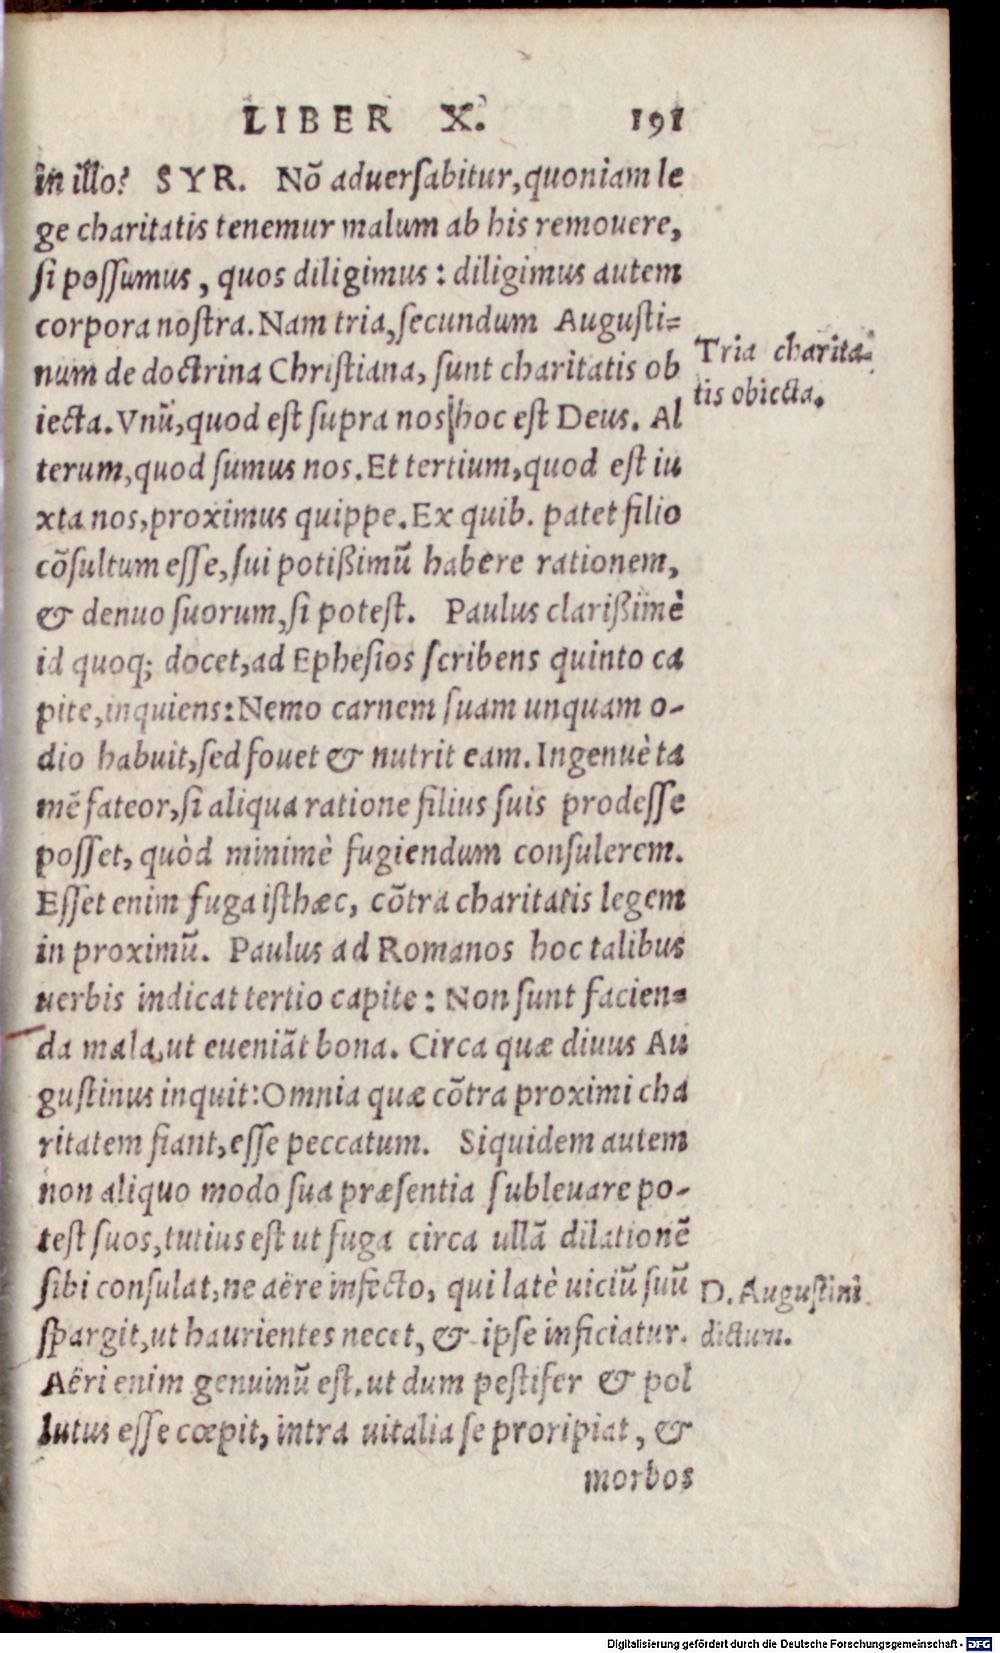 LIBER X. 191
in illo? SYR. Nõ aduersabitur, quoniam le
ge charitatis tenemur malum ab his remouere,
si possumus, quos diligimus: diligimus autem
corpora nostra. Nam tria, secundum Augusti=
num de doctrina Christiana, sunt charitatis ob
iecta. Vnũ, quod est supra nos hoc est Deus. Al
terum, quod sumus nos. Et tertium, quod est iu
xta nos, proximus quippe. Ex quib. patet filio
cõsultum esse, sui potißimũ habere rationem,
& denuo suorum, si potest. Paulus clarißimè
id quoq; docet, ad Ephesios scribens quinto ca
pite, inquiens: Nemo carnem suam unquam o-
dio habuit, sed fouet & nutrit eam. Ingenuè ta
mẽ fateor, si aliqua ratione filius suis prodesse
posset, quòd minimè fugiendum consulerem.
Esset enim fuga isthæc, cõtra charitatis legem
in proximũ. Paulus ad Romanos hoc talibus
uerbis indicat tertio capite: Non sunt facien=
da mala, ut eueniãt bona. Circa quæ diuus Au
gustinus inquit: Omnia quæ cõtra proximi cha
ritatem fiant, esse peccatum. Siquidem autem
non aliquo modo sua præsentia subleuare po-
test suos, tutius est ut fuga circa ullã dilationẽ
sibi consulat, ne aëre infecto, qui latè uiciũ suũ
spargit, ut haurientes necet, & ipse inficiatur.
Aëri enim genuinũ est, ut dum pestifer & pol
lutus esse cœpit, intra uitalia se proripiat, &
morbos
Tria charita=
tis obiecta.
D. Augustini
dictum.
Digitalisierung gefördert durch die Deutsche Forschungsgemeinschaft - DFG